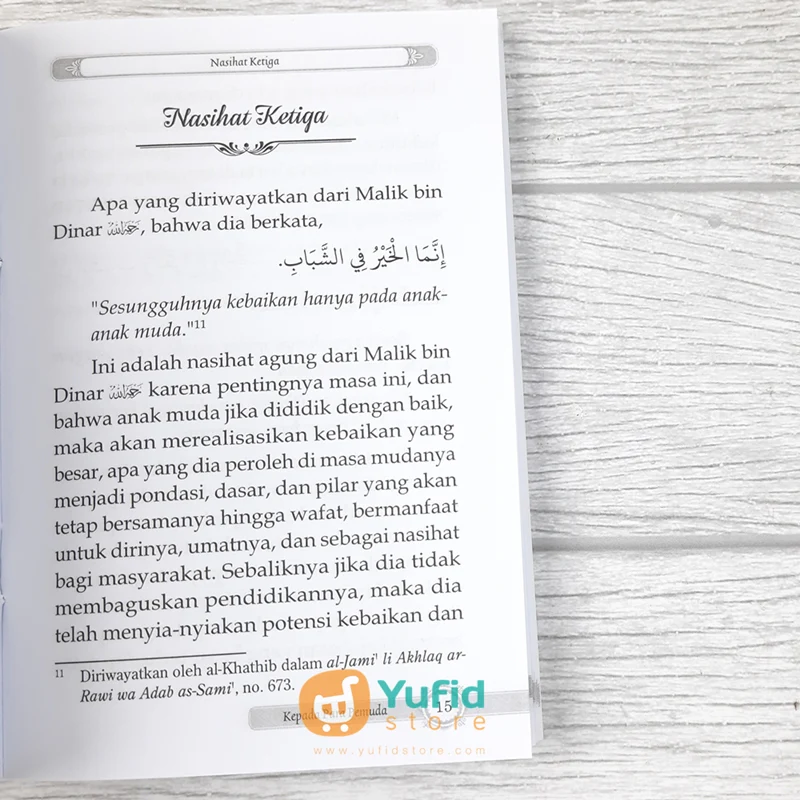 Nasihat Ketiga
Nasihat Ketiga
Apa yang diriwayatkan dari Malik bin
Dinar رحمه الله, bahwa dia berkata,
إِنَّمَا الْخَيْرُ فِي الشَّبَابِ.
"Sesungguhnya kebaikan hanya pada anak-
anak muda."11
Ini adalah nasihat agung dari Malik bin
Dinar رحمه الله karena pentingnya masa ini, dan
bahwa anak muda jika dididik dengan baik,
maka akan merealisasikan kebaikan yang
besar, apa yang dia peroleh di masa mudanya
menjadi pondasi, dasar, dan pilar yang akan
tetap bersamanya hingga wafat, bermanfaat
untuk dirinya, umatnya, dan sebagai nasihat
bagi masyarakat. Sebaliknya jika dia tidak
membaguskan pendidikannya, maka dia
telah menyia-nyiakan potensi kebaikan dan
11 Diriwayatkan oleh al-Khathib dalam al-Jami' li Akhlaq ar-
Rawi wa Adab as-Sami', no. 673.
Kepada Para Pemuda 15
Yufid
store
www.yufidstore.com